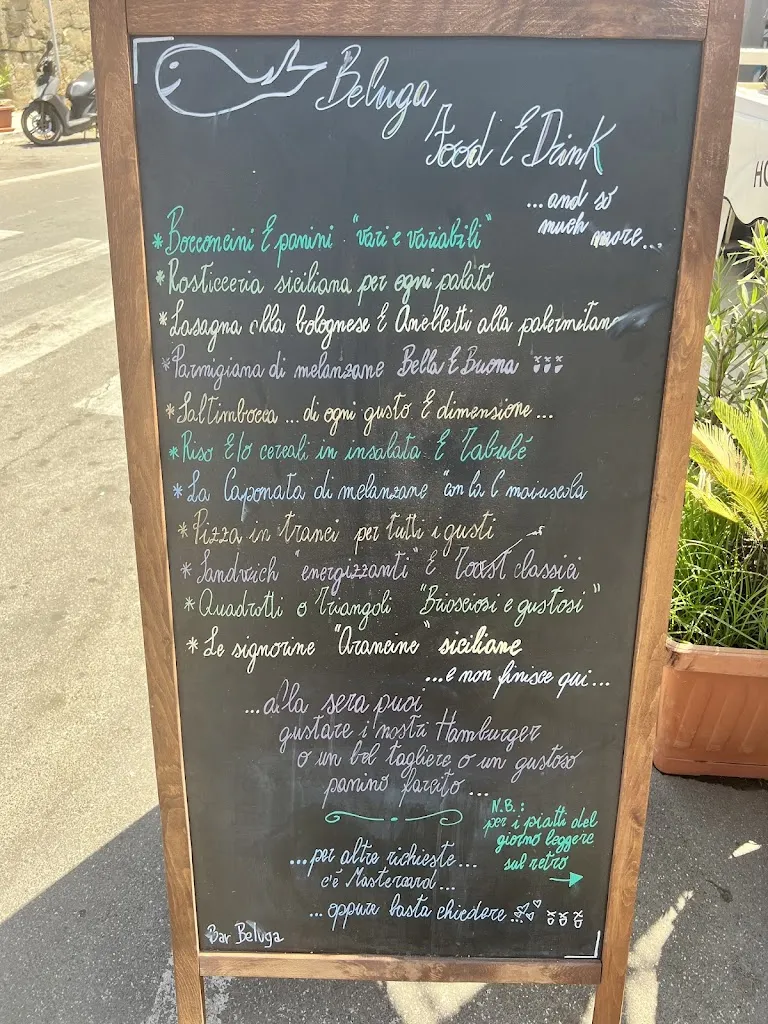 Beluga
Food E Drink
...and so
much more...
*Bocconcini E panini "vari e variabili"
*Rosticceria siciliana per ogni palato
*Lasagna alla bolognese E Anelletti alla palermitana
*Parmigiana di melanzane Bella E Buona
*Saltimbocca ... di ogni gusto E dimensione...
*Riso E/o cereali in insalata E Tabulé
*La Caponata di melanzane "con la C maiuscola
*Pizza in tranci per tutti i gusti
*Sandwich "energizzanti" E Toast classici
*Quadrotti o Triangoli "Briosciosi e gustosi"
*Le signorine "Arancine" siciliane
...e non finisce qui...
...alla sera puoi
gustare i nostri Hamburger
o un bel tagliere o un gustoso
panino farcito...
N.B.:
per i piatti del
giorno leggere
sul retro
...per altre richieste...
c'é Mastercard...
...oppure basta chiedere...
Bar Beluga